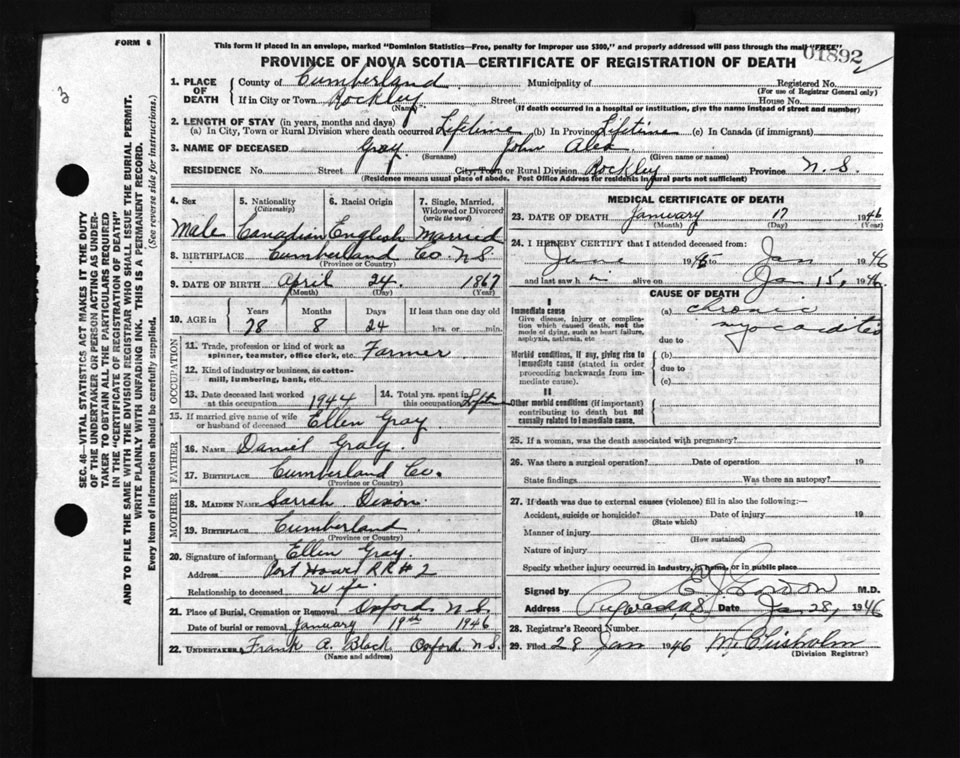 FORM 6
This form if placed in an envelope, marked "Dominion Statistics—Free, penalty for improper use $300," and properly addressed will pass through the mail "FREE"
01892
3
PROVINCE OF NOVA SCOTIA—CERTIFICATE OF REGISTRATION OF DEATH
SEC. 46—VITAL STATISTICS ACT MAKES IT THE DUTY
OF THE UNDERTAKER OR PERSON ACTING AS UNDER-
TAKER TO OBTAIN ALL THE PARTICULARS REQUIRED
IN THE "CERTIFICATE OF REGISTRATION OF DEATH"
AND TO FILE THE SAME WITH THE DIVISION REGISTRAR WHO SHALL ISSUE THE BURIAL PERMIT.
WRITE PLAINLY WITH UNFADING INK. THIS IS A PERMANENT RECORD.
Every item of information should be carefully supplied. (See reverse side for instructions.)
1. PLACE OF DEATH
County of Cumberland Municipality of Registered No.
(For use of Registrar General only)
If in City or Town Rockley Street House No.
(Name) (If death occurred in a hospital or institution, give the name instead of street and number)
2. LENGTH OF STAY (in years, months and days)
(a) In City, Town or Rural Division where death occurred Lifetime (b) In Province Lifetime (c) In Canada (if immigrant)
3. NAME OF DECEASED Gray John Alex
(Surname) (Given name or names)
RESIDENCE No. Street City, Town or Rural Division Rockley Province N.S.
(Residence means usual place of abode. Post Office Address for residents in rural parts not sufficient)
4. Sex 5. Nationality (Citizenship) 6. Racial Origin 7. Single, Married, Widowed or Divorced (write the word)
Male Canadian English Married
8. BIRTHPLACE Cumberland Co. N.S.
(Province or Country)
9. DATE OF BIRTH April 24 1867
(Month) (Day) (Year)
10. AGE in Years Months Days If less than one day old
78 8 24 hrs. or min.
OCCUPATION
11. Trade, profession or kind of work as
spinner, teamster, office clerk, etc. Farmer
12. Kind of industry or business, as cotton-
mill, lumbering, bank, etc.
13. Date deceased last worked
at this occupation 1944
14. Total yrs. spent in
this occupation
15. If married give name of wife
or husband of deceased Ellen Gray
FATHER
16. NAME Daniel Gray
17. BIRTHPLACE Cumberland Co.
(Province or Country)
MOTHER
18. MAIDEN NAME Sarrah Dixon
19. BIRTHPLACE Cumberland
(Province or Country)
20. Signature of informant Ellen Gray
Address Port Howe RR#2
Relationship to deceased Wife
21. Place of Burial, Cremation or Removal Oxford N.S.
Date of burial or removal January 19th 1946
22. UNDERTAKER Frank A. Black Oxford N.S.
(Name and address)
MEDICAL CERTIFICATE OF DEATH
23. DATE OF DEATH January 17 1946
(Month) (Day) (Year)
24. I HEREBY CERTIFY that I attended deceased from:
June 1945 to Jan 1946
and last saw h im alive on Jan 15, 1946
CAUSE OF DEATH
I
Immediate cause
Give disease, injury or complica-
tion which caused death, not the
mode of dying, such as heart failure,
asphyxia, asthenia, etc
(a) chronic
myocarditis
due to
Morbid conditions, if any, giving rise to
immediate cause (stated in order
proceeding backwards from im-
mediate cause).
(b)
due to
(c)
II
Other morbid conditions (if important)
contributing to death but not
causally related to immediate cause.
25. If a woman, was the death associated with pregnancy?
26. Was there a surgical operation? Date of operation 19
State findings Was there an autopsy?
27. If death was due to external causes (violence) fill in also the following:—
Accident, suicide or homicide? Date of injury 19
(State which)
Manner of injury
(How sustained)
Nature of injury
Specify whether injury occurred in industry, in home, or in public place
Signed by M.D.
Address Date Jan 28, 1946
28. Registrar's Record Number
29. Filed 28 Jan 1946 M. Chisholm
(Division Registrar)